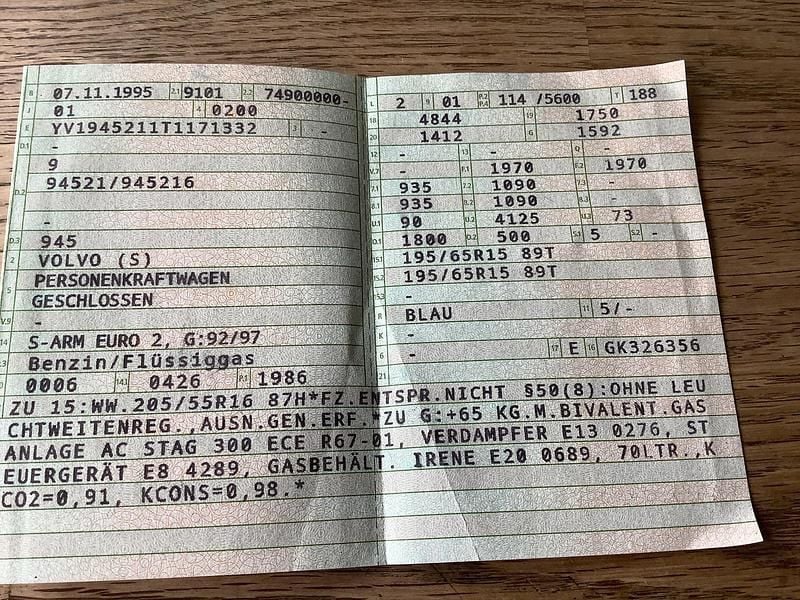 B 07.11.1995 2.1 9101 2.2 74900000-
J 01 4 0200
E YV1945211T1171332 3 -
D.1 -
9
D.2 94521/945216
-
D.3 945
2 VOLVO (S)
5 PERSONENKRAFTWAGEN
GESCHLOSSEN
V.9 -
14 S-ARM EURO 2, G:92/97
Benzin/Flüssiggas
0006 14.1 0426 P.1 1986
L 2 9 01 P.2 P.4 114 /5600 T 188
18 4844 19 1750
20 1412 G 1592
12 - 13 - Q -
V.7 - F.1 1970 F.2 1970
7.1 935 7.2 1090 7.3 -
8.1 935 8.2 1090 8.3 -
U.1 90 U.2 4125 U.3 73
O.1 1800 O.2 500 S.1 5 S.2 -
15.1 195/65R15 89T
15.2 195/65R15 89T
15.3 -
R BLAU 11 5/-
K -
6 - 17 E 16 GK326356
21
ZU 15:WW.205/55R16 87H*FZ.ENTSPR.NICHT §50(8):OHNE LEU
CHTWEITENREG.,AUSN.GEN.ERF.*ZU G:+65 KG.M.BIVALENT.GAS
ANLAGE AC STAG 300 ECE R67-01, VERDAMPFER E13 0276, ST
EUERGERÄT E8 4289, GASBEHÄLT. IRENE E20 0689, 70LTR.,K
CO2=0,91, KCONS=0,98.*